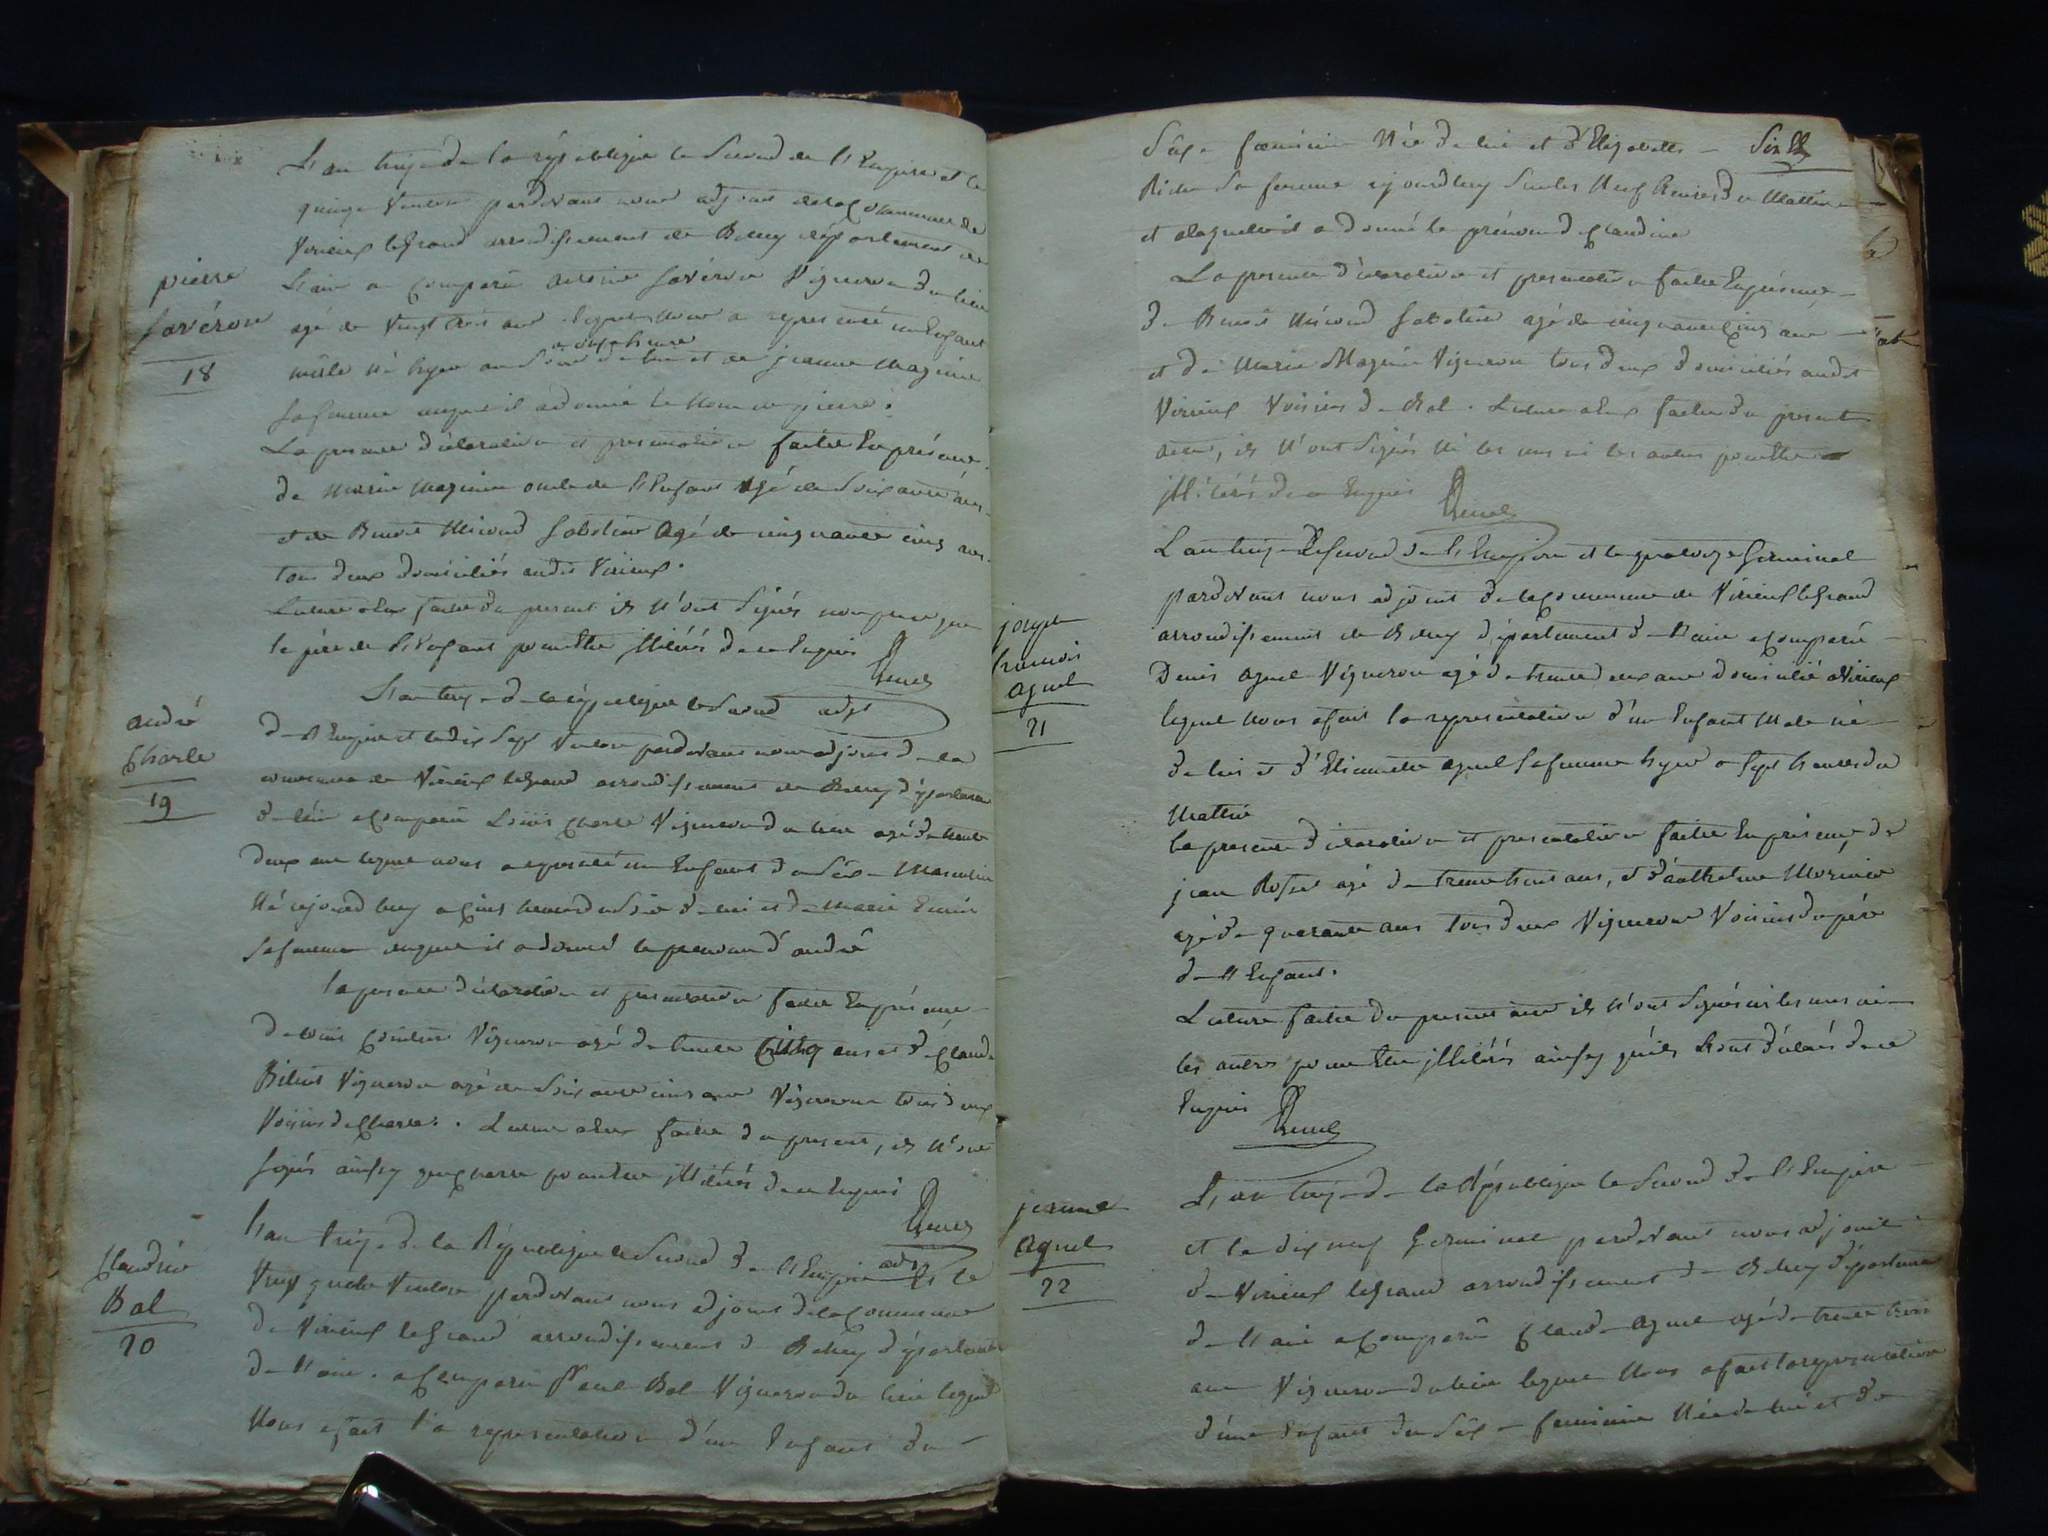 L'an treize de la république le Second de l'Empire et le
quinze Ventose pardevant nous adjoint de la Commune de
Virieux le Grand arrondissement de Belley département de
L'ain a Comparu Savéron Vigneron du lieu
agé de Vingt trois ans lequel Nous a representé un Enfant
a onze heure
mâle né hyer au Soir de lui et de jeanne Maginin
Sa femme auquel il a donné le Nom de pierre.
pierre
Savéron
18
La presente déclaration et presentation faitte En présence
de Maginin oncle de l'Enfant agé de Soixante ans
et de Benoit Sabotier agé de cinquante cinq ans
tous deux domiciliés audit Virieux.
Lecture a Eux faitte du present ils N'ont Signés non plus que
le père de l'Enfant pour Etre illitérés de ce Enquis
L'an treize de la république le Second
adjt
de l'Empire et le dix Sept Ventose pardevant nous adjoint de la
commune de Virieux le Grand arrondissement de Belley département
de l'ain a Comparu Louis Charle Vigneron du lieu agé de trente
deux ans lequel nous a representé un Enfant du Séxe Masculin
Né cejourd'huy a Cinq heures du Soir de lui et de Marie
Sa femme auquel il a donné le prenom d'andré
andré
Charle
19
la presente déclaration et presentation faitte En présence
de Vigneron agé de trente Cinq ans et de Claude
Billiet Vigneron agé de Soixante cinq ans Vignerons tous deux
Voisins de Charle. Lecture a Eux faitte du present, ils N'ont
Signés ainsy que Charle pour Etre illitérés de ce Enquis
adjt
L'an treize de la République le Second de l'Empire Et le
Vingt quatre Ventose pardevant nous adjoint de la Commune
de Virieux le Grand arrondissement de Belley département
de l'ain. a Comparu Bal Vigneron du lieu lequel
Nous a fait la representation d'un Enfant du
Claudine
Bal
20
Séxe foeminin Née de lui et d'Elizabette
Six
Sa femme cejourd'huy Sur les Neuf heures du Mattin
et a laquelle il a donné le prénom de Claudine
La presente déclaration et presentation faitte En présence
de Benoit Sabotier agé de cinquante Cinq ans
et de Marin Maginin Vigneron tous deux domiciliés audit
Virieux Voisins de Bal. Lecture a Eux faitte du present
acte, ils N'ont Signés Ni les uns ni les autres pour Etre
illitérés de ce Enquis
L'an treize Le Second de l'Empire et le quatorze Germinal
pardevant nous adjoint de la Commune de Virieux le Grand
arrondissement de Belley département de l'ain a Comparu
Denis Aguel Vigneron agé de trente deux ans domicilié a Virieux
lequel Nous a fait la representation d'un Enfant Male né
de lui et d'Etiennette Aguel Sa femme hyer a Sept heures du
Mattin
joseph
francois
Aguel
21
la presente déclaration et presentation faitte En présence de
jean Rosset agé de trente huit ans, et d'anthelme
agé de quarante ans tous deux Vignerons Voisins du père
de l'Enfant.
Lecture faitte du present acte ils N'ont Signés ni les uns ni
les autres pour Etre illitérés ainsy qu'ils l'ont déclaré de ce
Enquis
L'an treize de la République le Second de l'Empire
et le dix neuf Germinal pardevant nous adjoint
de Virieux le Grand arrondissement de Belley département
de l'ain a Comparu Claude Aguel agé de trente trois
ans Vigneron du lieu lequel Nous a fait la representation
d'une Enfant du Séxe feminin Née de lui et de
jeanne
Aguel
22